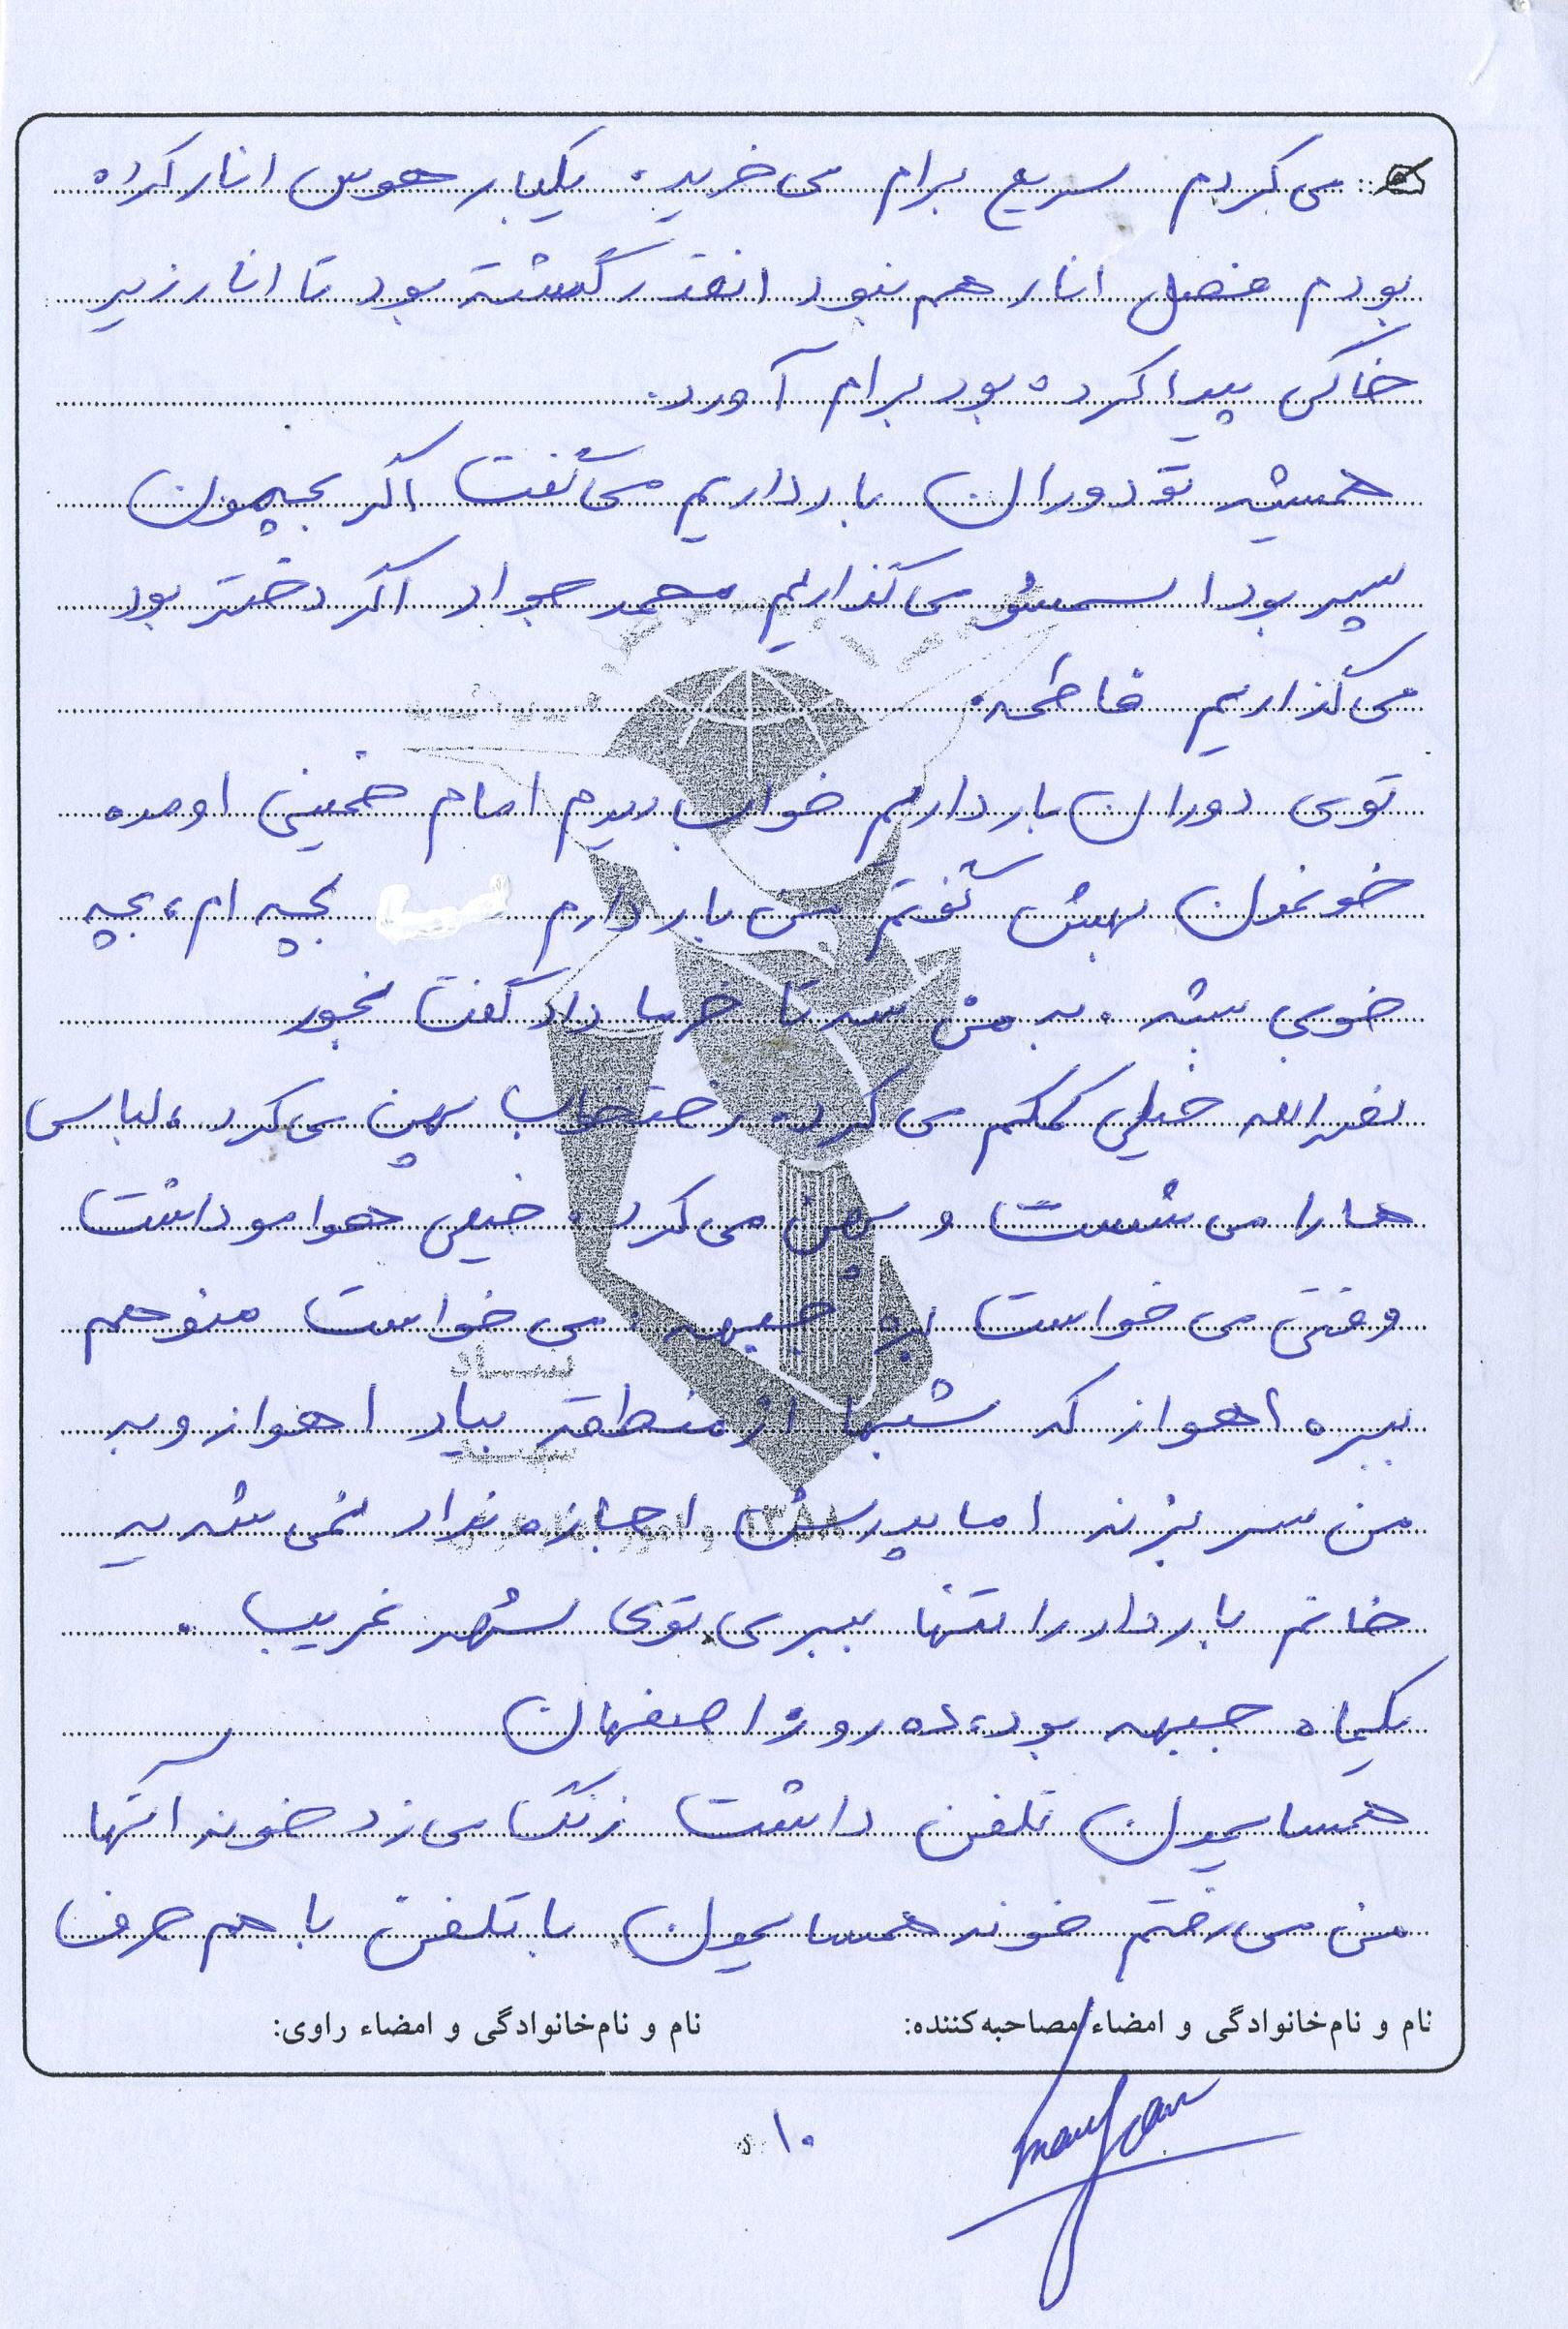 می کردم سریع برام می خرید. یکبار هوس انار کرده
بودم فصل انار هم نبود انقدر گشته بود تا انار زیر
خاکی پیدا کرده بود برام آورد.
همیشه تو دوران بارداریم می گفت اگر بچمون
پسر بود اسمشو می گذاریم محمد جواد اگر دختر بود
می گذاریم فاطمه.
توی دوران بارداریم خواب دیدم امام خمینی اومده
خونمون بهش گفتم من باردارم بچه ام، بچه
خوبی بشه. به من سه تا خرما داد گفت بخور
نصرالله خیلی کمکم می کرد. رختخواب پهن می کرد، لباس
ها را می شست و پهن می کرد. خیلی هوامو داشت
وقتی می خواست بره جبهه، می خواست منو هم
ببره اهواز که شبها از منطقه بیاد اهواز و به
من سر بزند اما پدرش اجازه نداد نمی شه یه
خانم باردار را تنها ببری توی شهر غریب.
یکماه جبهه بود، ده روز اصفهان
همسایمون تلفن داشت زنگ می زد خونه آنها
من می رفتم خونه همسایمون با تلفن با هم حرف
نام و نام‌خانوادگی و امضاء مصاحبه‌کننده:
نام و نام‌خانوادگی و امضاء راوی:
۱۰